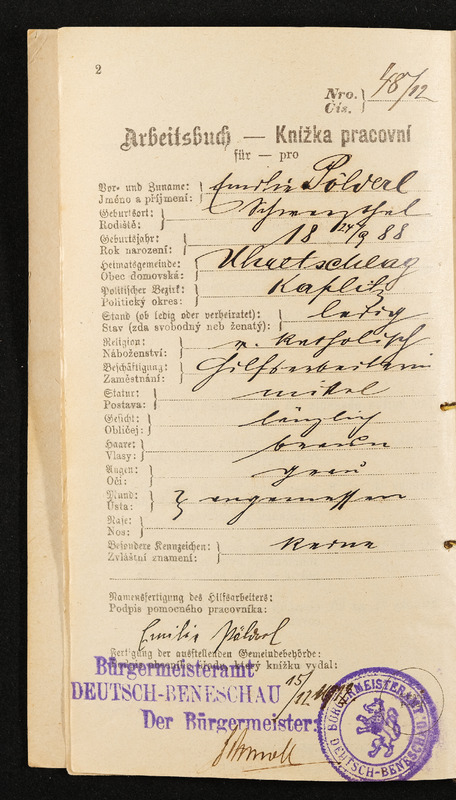 2
Nro. } 48/12
Čís.
Arbeitsbuch — Knížka pracovní
für — pro
Vor- und Zuname: } Emilie Pölderl
Jméno a příjmení:
Geburtsort: }
Rodiště:
Geburtsjahr: } 18 24/9 88
Rok narození:
Heimatsgemeinde: } Uhretschlag
Obec domovská:
Politischer Bezirk: } Kaplitz
Politický okres:
Stand (ob ledig oder verheiratet): } ledig
Stav (zda svobodný neb ženatý):
Religion: } r. katholisch
Náboženství:
Beschäftigung: } Hilfsarbeiterin
Zaměstnání:
Statur: } mittel
Postava:
Gesicht: } länglich
Obličej:
Haare: } braun
Vlasy:
Augen: } grau
Oči:
Mund: } angemessen
Ústa:
Nase: }
Nos:
Besondere Kennzeichen: } keine
Zvláštní znamení:
Namensfertigung des Hilfsarbeiters:
Podpis pomocného pracovníka:
Emilie Pölderl
Fertigung der ausstellenden Gemeindebehörde:
který knížku vydal:
Bürgermeisteramt
DEUTSCH-BENESCHAU
15/12
Der Bürgermeister:
BÜRGERMEISTERAMT
DEUTSCH-BENESCHAU